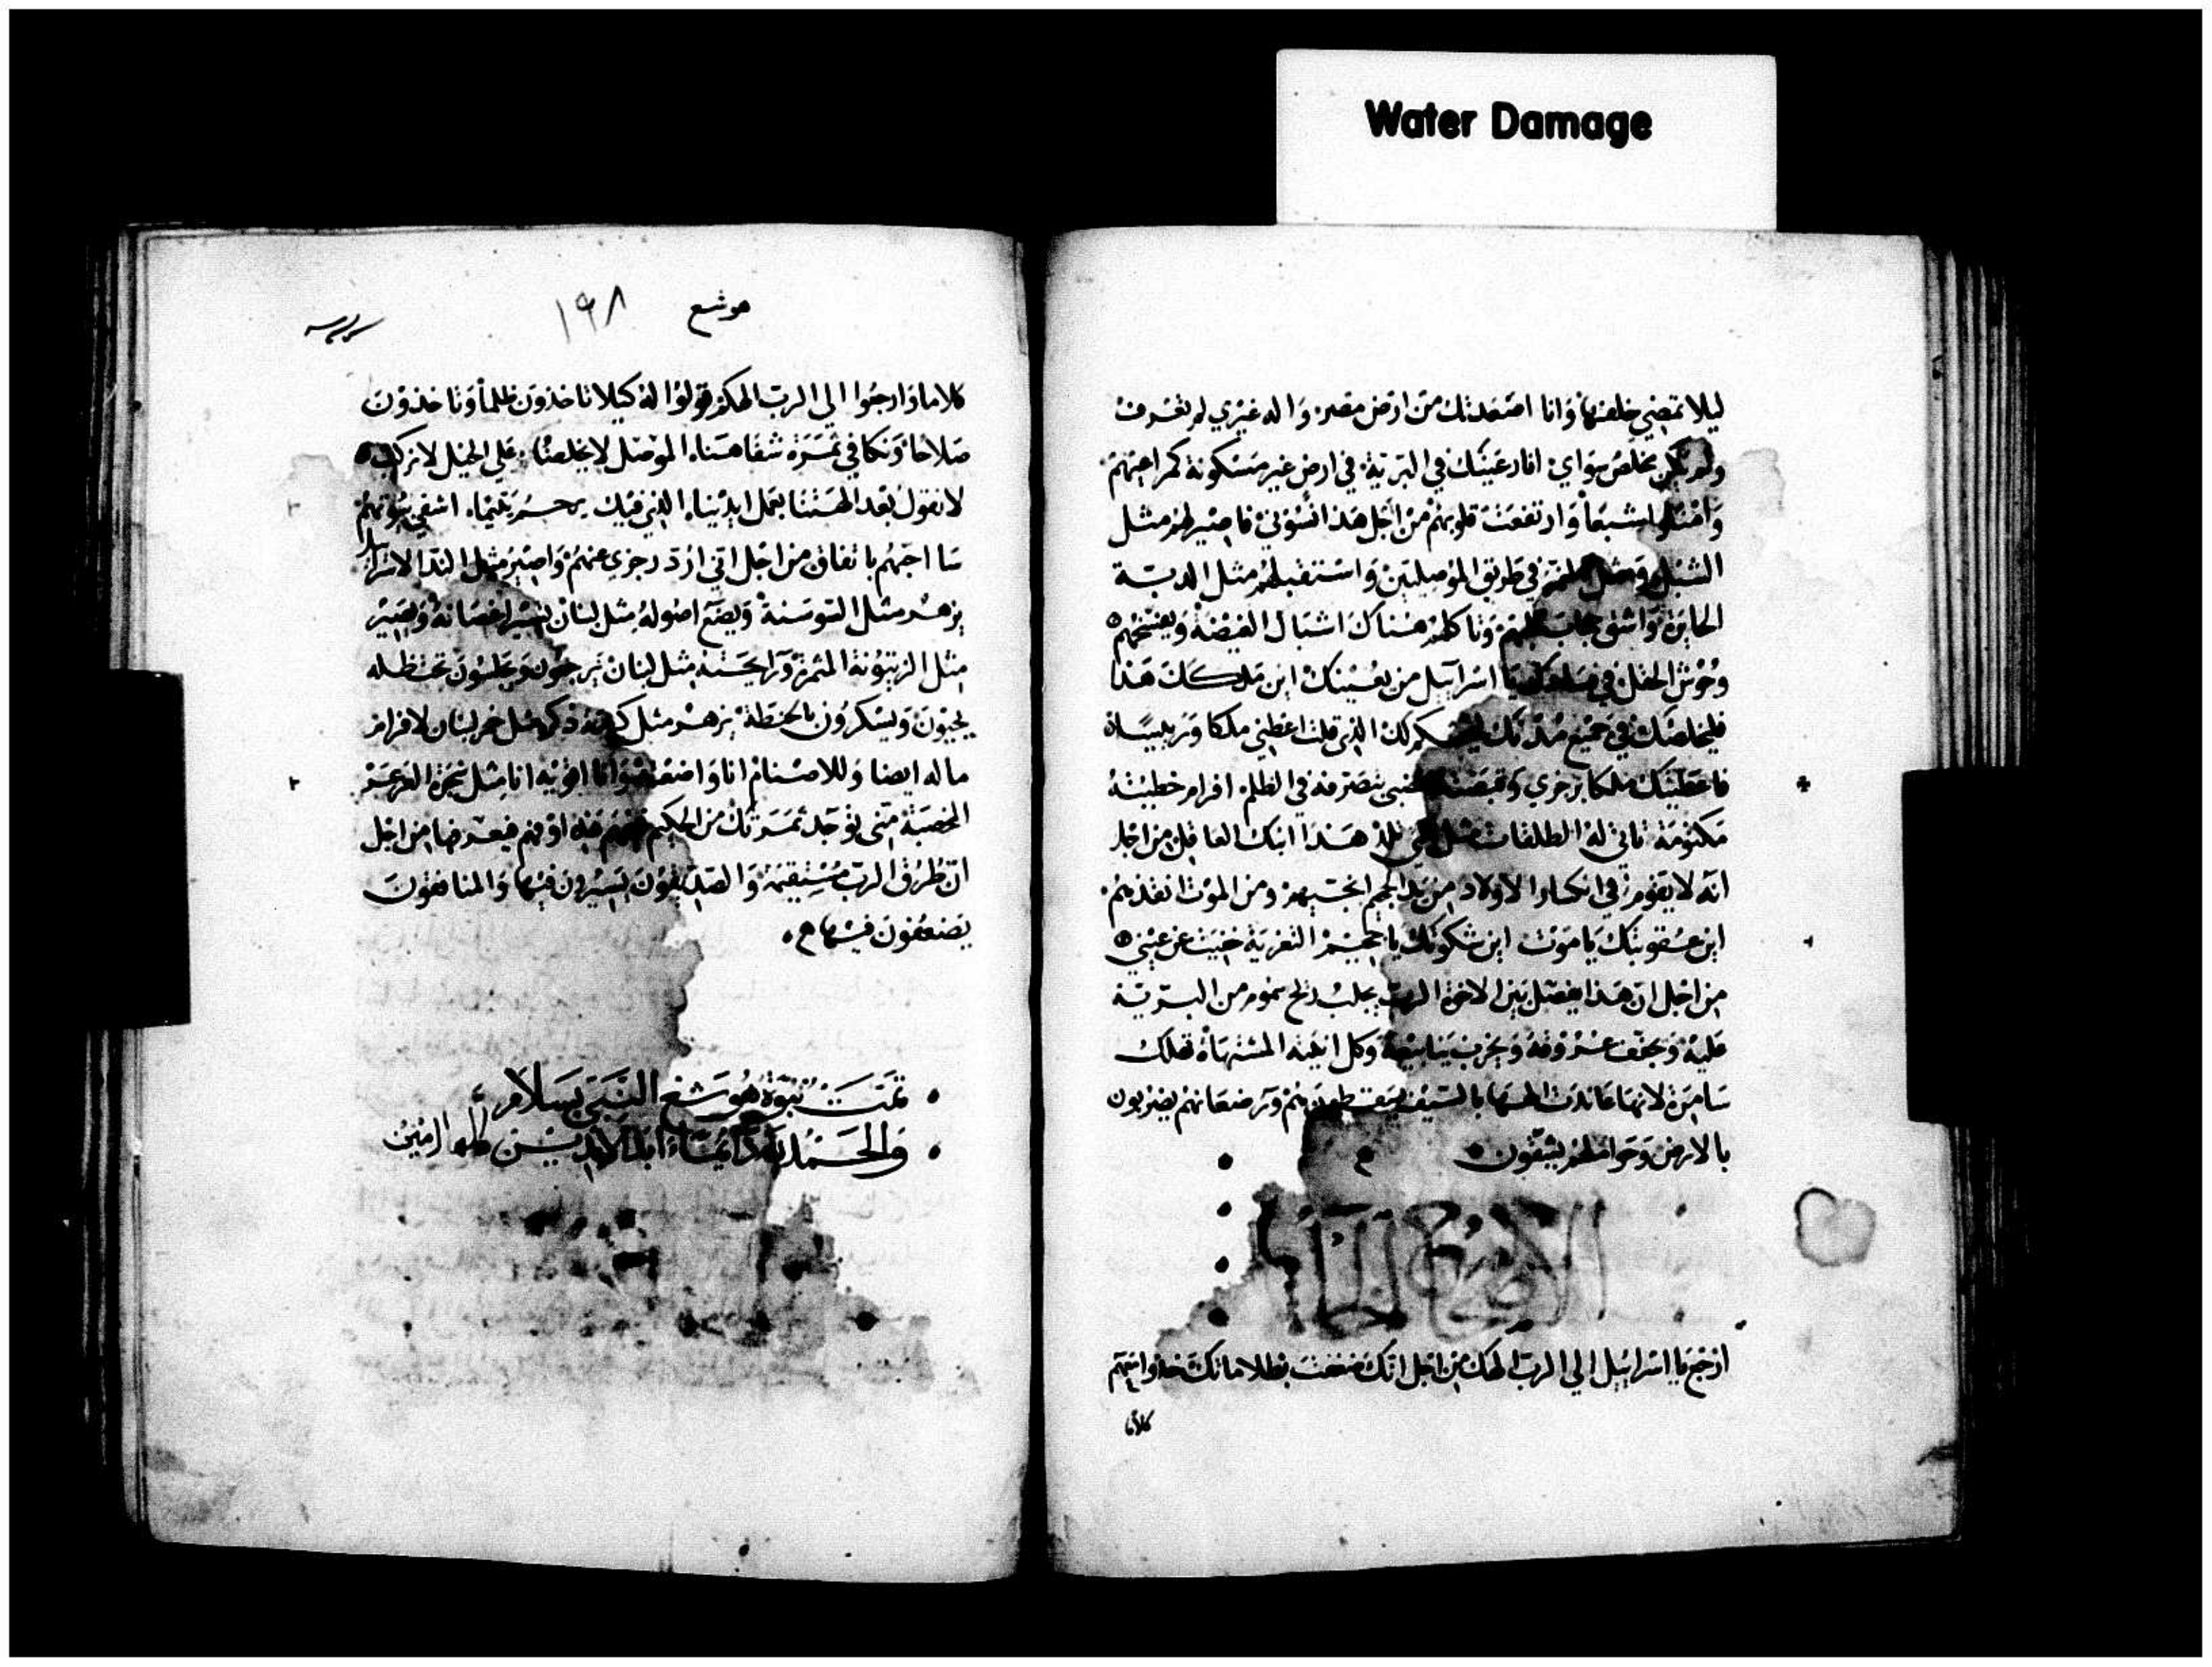 Water Damage
ليلا تمضي خلفها وانا اصعدتك من ارض مصر واله غيري لم تعرف
ولم يكن مخلص سواي انا رعيتك في البرية في ارض غير مسكونة كمراعيهم
وامتلوا شبعاً وارتفعت قلوبهم من اجل هذا انسوني فاصير لهم مثل
الشبل ومثل في طريق الموصليين واستقبلهم مثل الدبة
الحايرة واشق حجاب قلبهم وتاكلهم هناك اشبال الغيضة ويفسخهم
وحوش الحقل في يا اسراييل من يعينك اين ملكك هذا
فليخلصك في جميع مدنك ليحكم لك الذي قلت اعطيني ملكا وربيسا
فاعطيتك ملكا برجزي وقبضت بغضبي بتصرفه في الظلم افرام خطيته
مكتومة تاتي له الطلقات مثل التي تلد هذا ابنك العاقل من اجل
انه لا يقوم في انكسار الاولاد من يد الجحيم انجيهم ومن الموت انقذهم
اين عقوبتك يا موت اين شكوتك يا جحيم التعزية خفيت عن عيني
من اجل ان هذا يفصل بين الاخوة الرب يجلب ريح سموم من البرية
عليه ويجفف عروقه ويخرب ينابيعه وكل انيته المشتهاة تهلك
سامرة لانها عاندت الهها بالسيف يسقطون هم ورضعانهم يضربون
بالارض وحواملهم يشقون
الاصحاح
ارجع يا اسراييل الي الرب الهك من اجل انك ضعفت بظلاماتك خذوا معكم
كلاما
هوشع ١٩٨
كلاما وارجعوا الي الرب الهكم وقولوا له كيلا تاخذون ظلماً وتاخذون
صلاحا ونكافي ثمرة شفاهنا الموصل لا يخلصنا علي الخيل لا نركب
لا نقول بعد الهتنا بعمل ايدينا الذي فيك يرحم يتيما اشفي بيوتهم
سا احبهم باتفاق من اجل اني ارد رجزي عنهم واصير مثل الندا لاسراييل
يزهر مثل السوسنة ويضع اصوله مثل لبنان تسير اغصانه ويصير
مثل الزيتونة المثمرة ورايحته مثل لبنان يرجعون ويجلسون تحت ظله
يحيون ويسكرون بالحنطة يزهر مثل كرمة ذكره مثل خمر لبنان لافرام
ما له ايضا وللاصنام انا واضعته وانا اقويه انا مثل شجرة العرعر
الخصبة متي توجد ثمرتك من الحكيم فيفهم هذه او فهم فيعرفها من اجل
ان طرق الرب مستقيمة والصديقون يسيرون فيها والمنافقون
يضعفون فيها
تمت نبوة هوشع النبي بسلام
والحمد لله دايما ابد الابدين